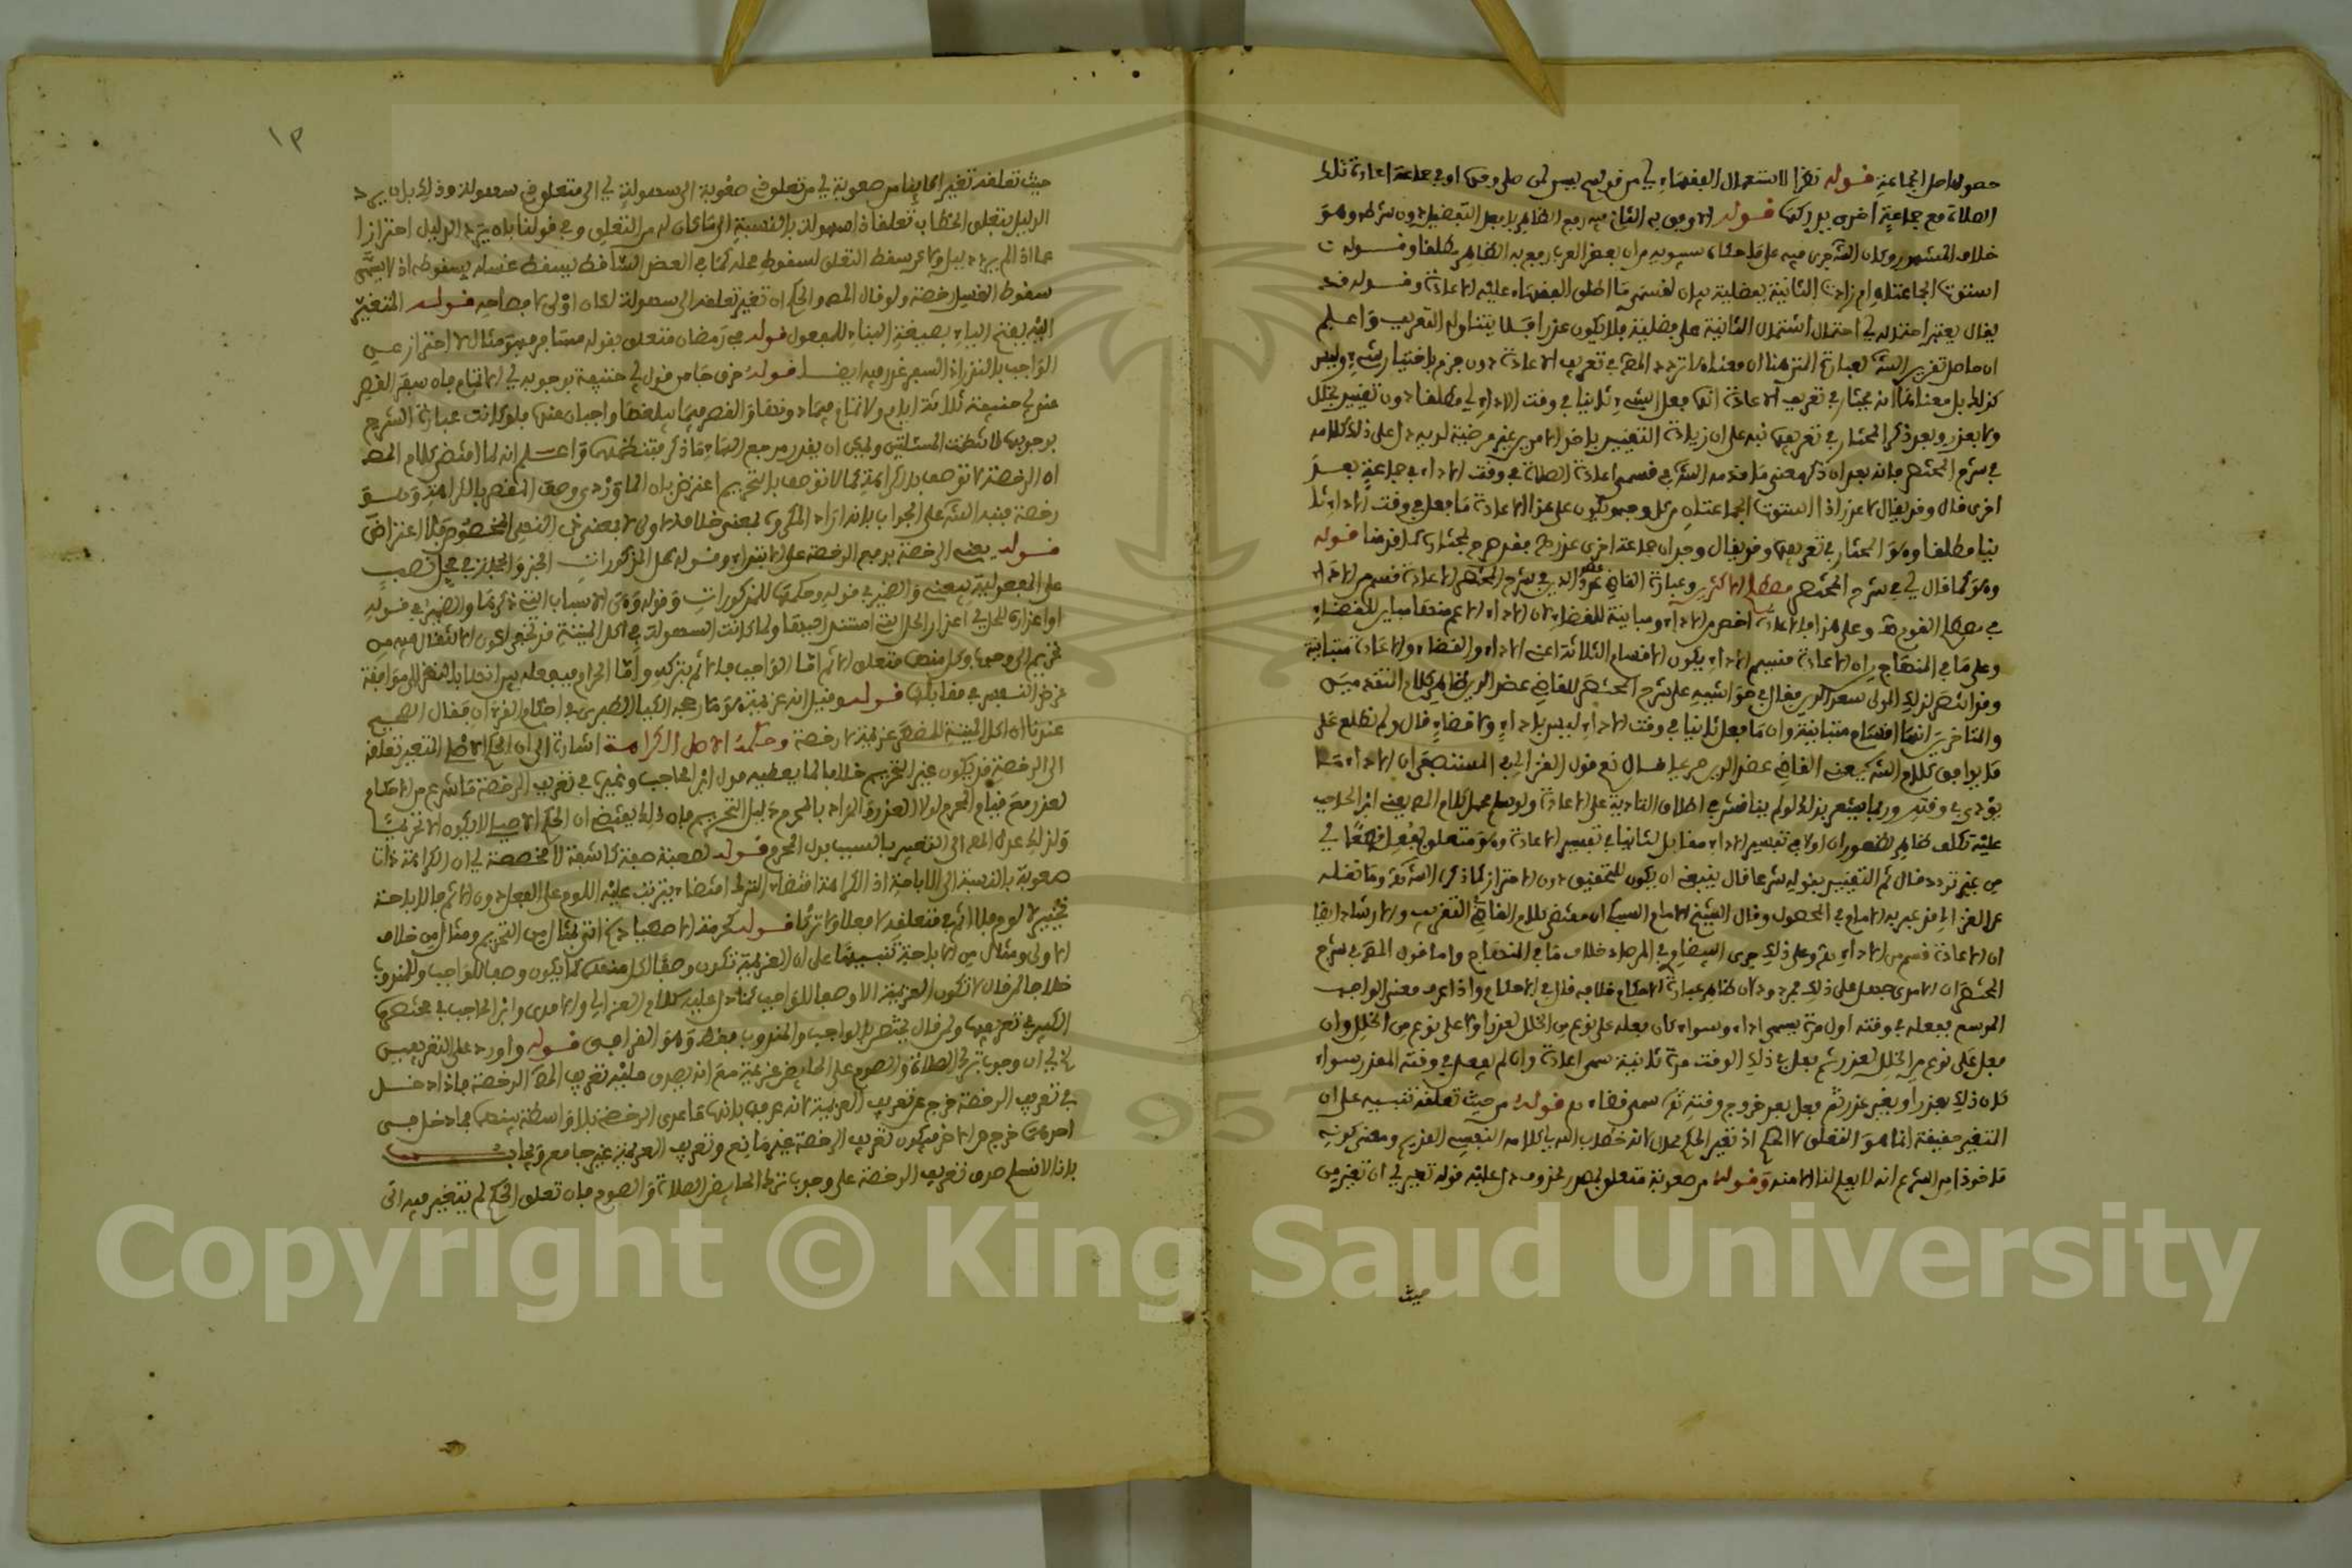 حصول اصل الجماعة قوله نظرا لاستعمال الفقهاء اي من قولهم يسن لمن صلى وحده او في جماعة اعادة تلك
الصلاة مع جماعة اخرى يدركها قوله
خلاف المشهور وكان الشارح جرى فيه على ما حكاه سيبويه من ان بعض العرب يرفع به الظاهر مطلقا وقوله
استوت الجماعتان ام زادت الثانية بفضيلة بيان لقسمي ما اطلق الفقهاء عليه الاعادة وقوله قد
يقال يعتبر احتماله اي احتمال اشتمال الثانية على فضيلة فلا يكون عذرا فلا يتناوله التعريف واعلم
ان حاصل تقرير الشارح لعبارة المتن هنا ان معناه لا تردد المصنف في تعريف الاعادة دون جزم باختيار شيء وليس
كذلك بل معناها انه يختار في تعريف الاعادة انها فعل الشيء ثانيا في وقت الاداء اي مطلقا دون تقييد بخلل
ولا بعذر وبعد ذكر المختار في تعريفها نبه على ان زيادة التقييد باحد الامرين غير مرضية لديه دل على ذلك كلامه
في شرح المختصر فانه بعد ان ذكر معنى ما قدمه الشارح في قسمي اعادة الصلاة في وقت الاداء في جماعة بعد
اخرى قال وقد يقال لا عذر اذا استوت الجماعتان من كل وجه وتكون على هذا الاعادة ما فعل في وقت الاداء ثا
نيا مطلقا وهو المختار في تعريفها
وهو كما قال اي في شرح المختصر مصطلح الاكثرين وعبارة القاضي عضد الدين في شرح المختصر الاعادة قسم من الاداء
في مصطلح القوم وعلى هذا فالاعادة اخص من الاداء ومباينة للقضاء لان الاداء الاعم منها مباين للقضاء
وعلى ما في المنهاج من ان الاعادة قسيم الاداء يكون الاقسام الثلاثة اعني الاداء والقضاء والاعادة متباينة
وقد انتصر لذلك المولى سعد الدين فقال في حواشيه على شرح المختصر للقاضي عضد الدين ظاهر كلام المتقدمين
والمتاخرين انها اقسام متباينة وان ما فعل ثانيا في وقت الاداء ليس باداء ولا قضاء قال ولم نطلع على
ما يوافق كلام الشارح يعني القاضي عضد الدين صريحا قال نعم قول الغزالي في المستصفى ان الاداء ما
يؤدى في وقته ربما يشعر بذلك لو لم يناقش في اطلاق التادية على الاعادة ولو سلم فحمل كلام المصنف يعني ابن الحاجب
عليه تكلف ظاهر لظهور ان اولا في تفسير الاداء مقابل لثانيا في تفسير الاعادة وهو متعلق بفعل قطعا اي
من غير تردد قال ثم التقييد بقوله شرعا قال ينبغي ان يكون للتحقيق دون الاحتراز كما ذكره الشارح وما نقله
عن الغزالي قد عبر به الامام في المحصول وقال الشيخ الامام السبكي ان مقتضى كلام القاضي في التقريب والارشاد ايضا
ان الاعادة قسم من الاداء وعلى ذلك جرى البيضاوي في المرصاد خلاف ما في المنهاج واما قول المصنف في شرح
المختصر ان الامدي جعل على ذلك فمردود لان ظاهر عبارة الاحكام خلافه قال في الاحكام واذا عرف معنى الواجب
الموسع ففعله في وقته اول مرة يسمى اداء وسواء كان فعله على نوع من الخلل لعذر اولا على نوع من الخلل وان
فعل على نوع من الخلل لعذر ثم فعل في ذلك الوقت مرة ثانية سمي اعادة وان لم يفعل في وقته المقدر سواء
كان ذلك بعذر او بغير عذر ثم فعل بعد خروج وقته سمي قضاء قوله من حيث تعلقه تنبيه على ان
التغير حقيقة انما هو التعلق لا الحكم اذ تغير الحكم محال لانه خطاب الله اي كلامه النفسي القديم ومعنى كونه
ماخوذا من الشرع انه لا يعلم لنا الا منه وقوله من صعوبة متعلق بمصدر محذوف دل عليه قوله تغير اي ان تغير من
حيث
١٣
حيث تعلقه تغيرا كاينا من صعوبة اي من تعلق فيه صعوبة الى سهولة اي الى متعلق فيه سهولة وذلك بان يرد
الدليل بتعلق الخطاب تعلقا ذا سهولة بالنسبة الى ما كان له من التعلق وفي قولنا بان يرد الدليل احترازا
عما اذا لم يرد دليل ولا كن سقط التعلق لسقوط محله كما في العضو الساقط يسقط غسله بسقوطه اذ لا يسمى
سقوط الغسل رخصة ولو قال المصنف والحكم ان تغير تعلقه الى سهولة لكان اولى لافصاحه قوله المتغير
اليه بفتح الياء بصيغة البناء للمفعول قوله في رمضان متعلق بقوله مسافر وهو مثال لا احتراز عن
الواجب بالنذر اذ السفر عذر فيه ايضا قوله
عنده ثلاثة ايام
بوجوبها لا شملت المسئلتين ويمكن ان يقدر مرجع الهاء ما ذكر واعلم انه لما اقتضى كلام المصنف
ان الرخصة لا توصف بالكراهة كما لا توصف بالتحريم اعترض
رخصة فنبه الشارح على الجواب بانه اراد المكروه بمعنى خلاف الاولى لا بمعنى ذي النهي المخصوص فلا اعتراض
قوله يعني الرخصة برفع الرخصة على الابتداء وقوله كحل المذكورات الخبر والجملة في محل نصب
على المفعولية ليعني والضمير في قوله وحكمها للمذكورات وقوله وهي الاسباب التي ذكرها والضمير في قوله
او اعذاره للحل اي اعذار الحل
وكل منهما متعلق الاثم اما الواجب فالاثم بتركه واما الحرام فبفعله
غرض النفس في مقابلها قوله وقيل انه عزيمة هو ما رجحه الكيا الطبري في احكام القرءان فقال الصحيح
عندنا ان اكل الميتة للمضطر عزيمة لا رخصة وحكمه الاصلي الكراهة اشارة الى ان الحكم الاصلي المتغير تعلقه
الى الرخصة قد يكون غير التحريم خلافا لما يعطيه قول ابن الحاجب وغيره في تعريف الرخصة ما شرع من الاحكام
لعذر مع قيام المحرم لولا العذر والمراد بالمحرم دليل التحريم فان ذلك يقتضي ان الحكم الاصلي لا يكون الا تحريما
ولذلك عدل المصنف الى التعبير بالسبب بدل المحرم قوله الصعبة صفة كاشفة لا مخصصة اي ان الكراهة ذات
صعوبة بالنسبة الى الاباحة اذ الكراهة اقتضاء الترك اقتضاء يترتب عليه اللوم على الفعل دون الاثم والاباحة
تخيير لا لوم ولا اثم في متعلقه لا فعلا ولا تركا قوله كحرمة الاصطياد
الاولى ومثال من الاباحة تنبيها على ان العزيمة تكون وصفا لكل منها كما يكون وصفا للواجب والمندوب
خلافا لمن قال لا تكون العزيمة الا وصفا للواجب كما دل عليه كلام الغزالي والامدي وابن الحاجب في مختصره
الكبير في تعريفها ولمن قال يختص بالواجب والمندوب فقط وهو القرافي قوله واورد على التعريفين
الخ اي ان وجوب ترك الصلاة والصوم على الحائض عزيمة مع انه يصدق عليه تعريف المصنف الرخصة فاذا دخل
في تعريف الرخصة خرج عن تعريف العزيمة لانه عرفها بانها ما عدى الرخصة بلا واسطة بينهما فما دخل في
احدهما خرج من الاخر فيكون تعريف الرخصة غير مانع وتعريف العزيمة غير جامع ويجاب
بانا لا نسلم صدق تعريف الرخصة على وجوب ترك الحائض الصلاة والصوم فان تعلق الحكم لم يتغير فيه الى
Copyright © King Saud University
1957